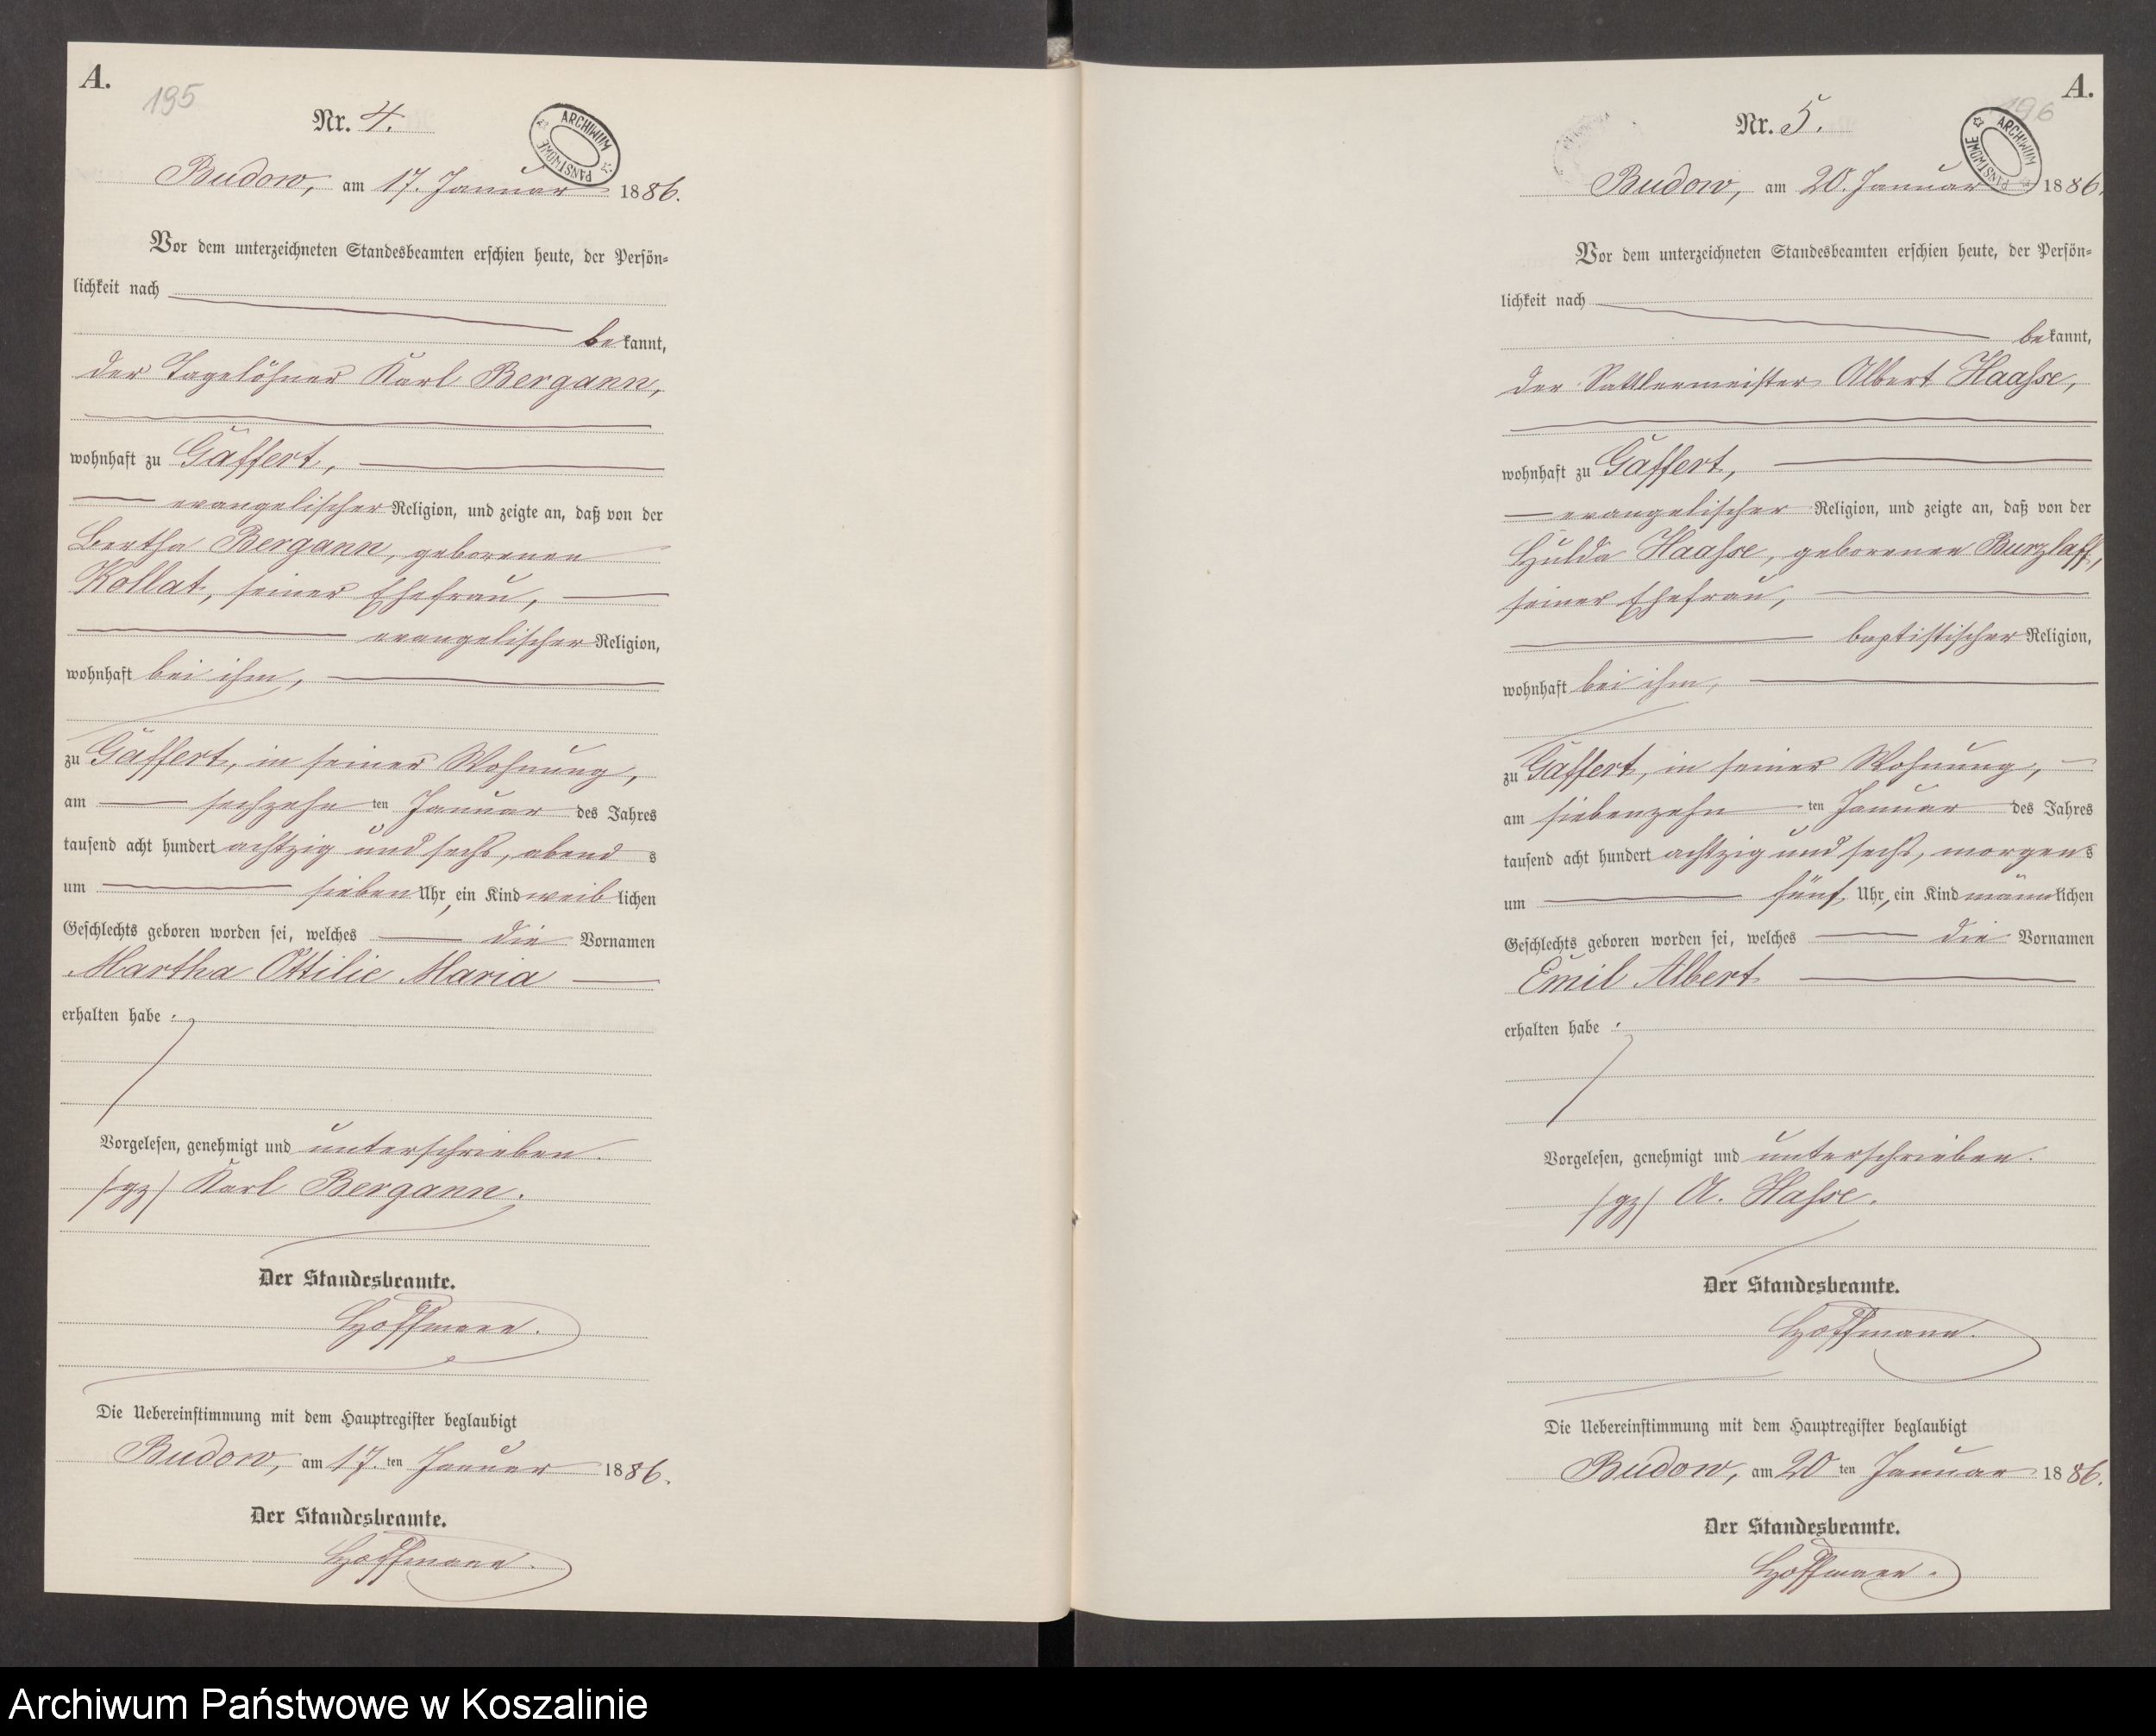 A.
195
Nr. 4.
ARCHIWUM PAŃSTWOWE
Budow, am 17. Januar 1886.
Vor dem unterzeichneten Standesbeamten erschien heute, der Persön-
lichkeit nach
bekannt,
der Tagelöhner Karl Bergann,
wohnhaft zu Gaffert,
evangelischer Religion, und zeigte an, daß von der
Bertha Bergann, geborenen
Kollat, seiner Ehefrau,
evangelischer Religion,
wohnhaft bei ihm,
zu Gaffert, in seiner Wohnung,
am sechzehn ten Januar des Jahres
tausend acht hundert achtzig und sechs, abends
um sieben Uhr, ein Kind weiblichen
Geschlechts geboren worden sei, welches die Vornamen
Martha Ottilie Maria
erhalten habe.
Vorgelesen, genehmigt und unterschrieben.
/gz/ Karl Bergann.
Der Standesbeamte.
Hoffmann.
Die Uebereinstimmung mit dem Hauptregister beglaubigt
Budow, am 17. ten Januar 1886.
Der Standesbeamte.
Hoffmann.
A.
196
Nr. 5.
ARCHIWUM PAŃSTWOWE
Budow, am 20. Januar 1886.
Vor dem unterzeichneten Standesbeamten erschien heute, der Persön-
lichkeit nach
bekannt,
der Sattlermeister Albert Haahse,
wohnhaft zu Gaffert,
evangelischer Religion, und zeigte an, daß von der
Hulda Haahse, geborenen Burzlaff,
seiner Ehefrau,
baptistischer Religion,
wohnhaft bei ihm,
zu Gaffert, in seiner Wohnung,
am siebenzehn ten Januar des Jahres
tausend acht hundert achtzig und sechs, morgens
um fünf Uhr, ein Kind männlichen
Geschlechts geboren worden sei, welches die Vornamen
Emil Albert
erhalten habe.
Vorgelesen, genehmigt und unterschrieben.
/gz/ A. Hahse.
Der Standesbeamte.
Hoffmann.
Die Uebereinstimmung mit dem Hauptregister beglaubigt
Budow, am 20 ten Januar 1886.
Der Standesbeamte.
Hoffmann.
Archiwum Państwowe w Koszalinie